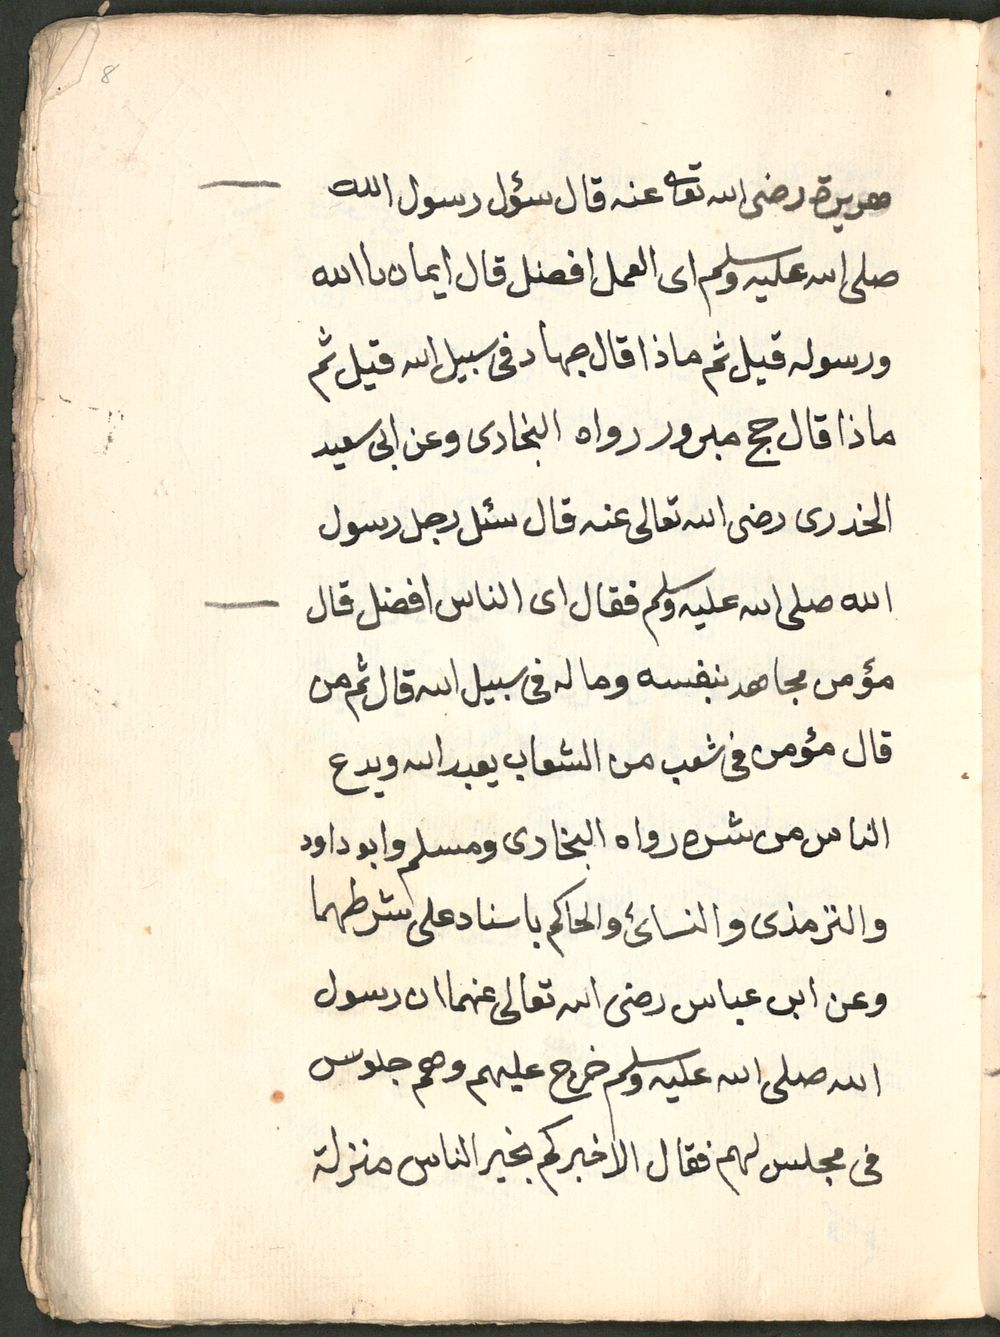 8
هريرة رضى الله تعالى عنه قال سؤل رسول الله
صلى الله عليه وسلم اى العمل افضل قال ايمان باالله
ورسوله قيل ثم ماذا قال جهاد فى سبيل الله قيل ثم
ماذا قال حج مبرور رواه البخارى وعن ابى سعيد
الخدرى رضى الله تعالى عنه قال سئل رجل رسول
الله صلى الله عليه وسلم فقال اى الناس افضل قال
مؤمن مجاهد بنفسه وماله فى سبيل الله قال ثم من
قال مؤمن فى شعب من الشعاب يعبد الله ويدع
الناس من شره رواه البخارى ومسلم وابو داود
والترمذى والنسائ والحاكم باسناد على شرطهما
وعن ابن عباس رضى الله تعالى عنهما ان رسول
الله صلى الله عليه وسلم خرج عليهم وهم جلوس
فى مجلس لهم فقال الا اخبركم بخير الناس منزلة